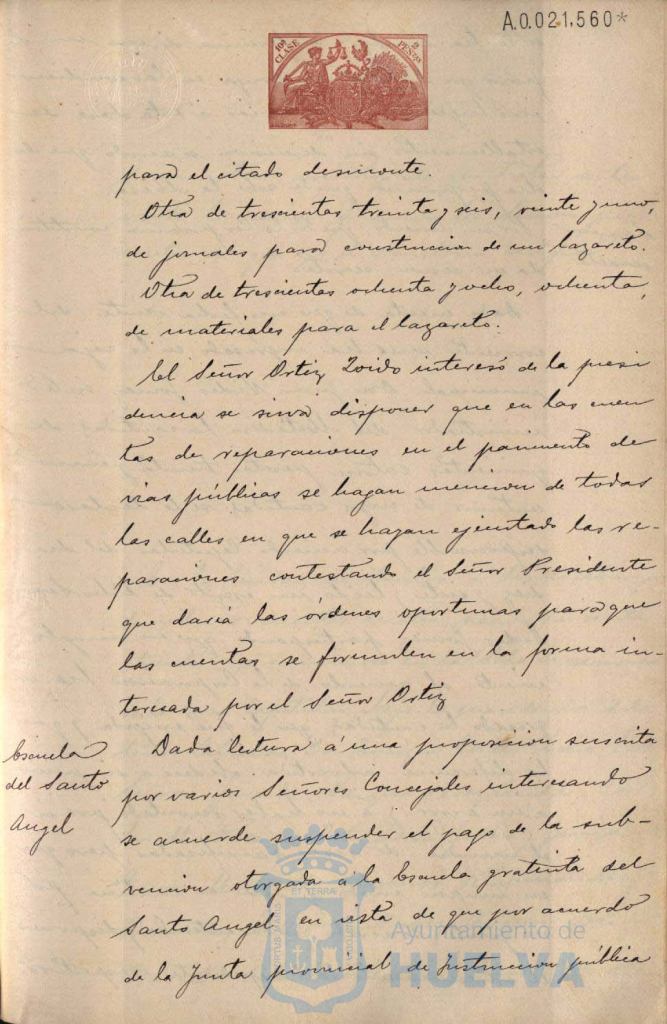 A.0.021,560*
10ª CLASE
2 PESETAS
para el citado desmonte.
Otra de trescientas treinta y seis, veinte y uno,
de jornales para construccion de un lazareto.
Otra de trescientas ochenta y ocho, ochenta,
de materiales para el lazareto.
El Señor Ortiz Zoido interesó de la presi
dencia se sirva disponer que en las cuen
tas de reparaciones en el pavimento de
vias públicas se hagan mencion de todas
las calles en que se hayan ejecutado las re-
paraciones contestando el Señor Presidente
que daria las órdenes oportunas para que
las cuentas se formulen en la forma in-
teresada por el Señor Ortiz
Escuela
del Santo
Angel
Dada lectura á una proposicion suscrita
por varios Señores Concejales interesando
se acuerde suspender el pago de la sub-
vencion otorgada á la Escuela gratuita del
Santo Angel en vista de que por acuerdo
de la Junta provincial de Instruccion pública
Ayuntamiento de
HUELVA